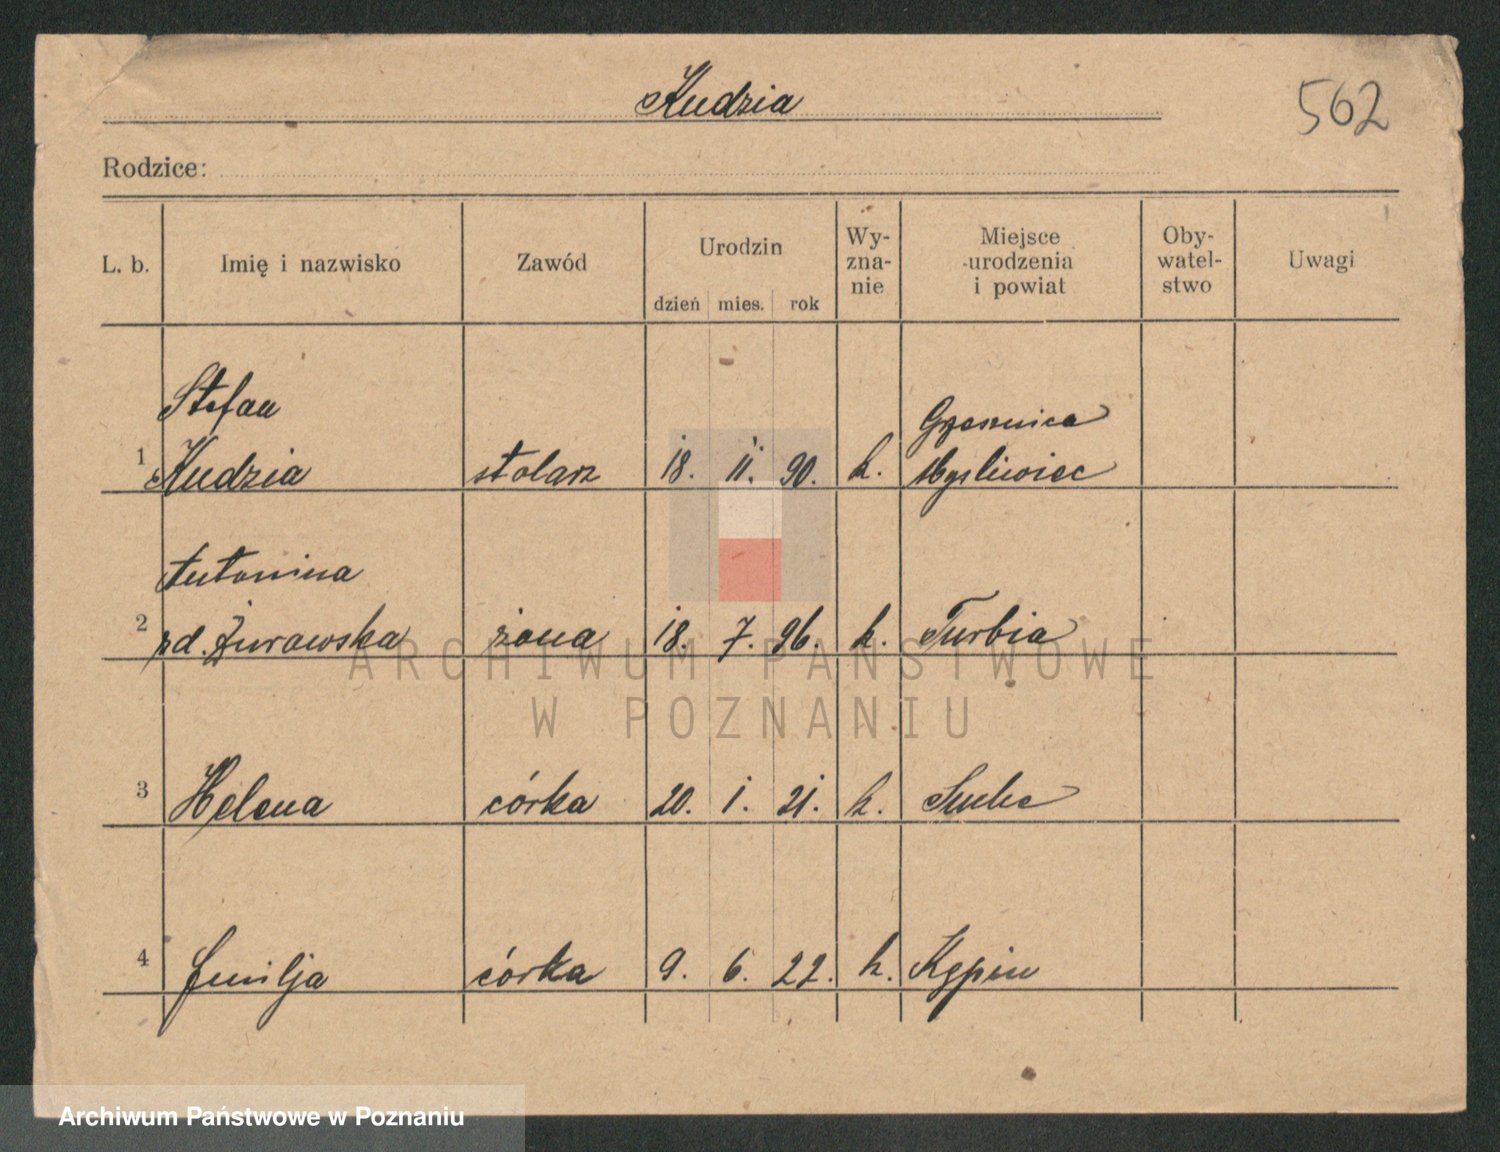 Kudzia
562
Rodzice:
L. b. Imię i nazwisko Zawód Urodzin dzień mies. rok Wy-zna-nie Miejsce urodzenia i powiat Oby-watel-stwo Uwagi
Stefan
1 Kudzia stolarz 18. 11. 90. k.
Antonina
2 zd. Żurawska żona 18. 7. 96. k. Turbia
3 Helena córka 20. 1. 21. k.
4 Emilja córka 9. 6. 22. k. Kępin
ARCHIWUM PAŃSTWOWE
W POZNANIU
Archiwum Państwowe w Poznaniu